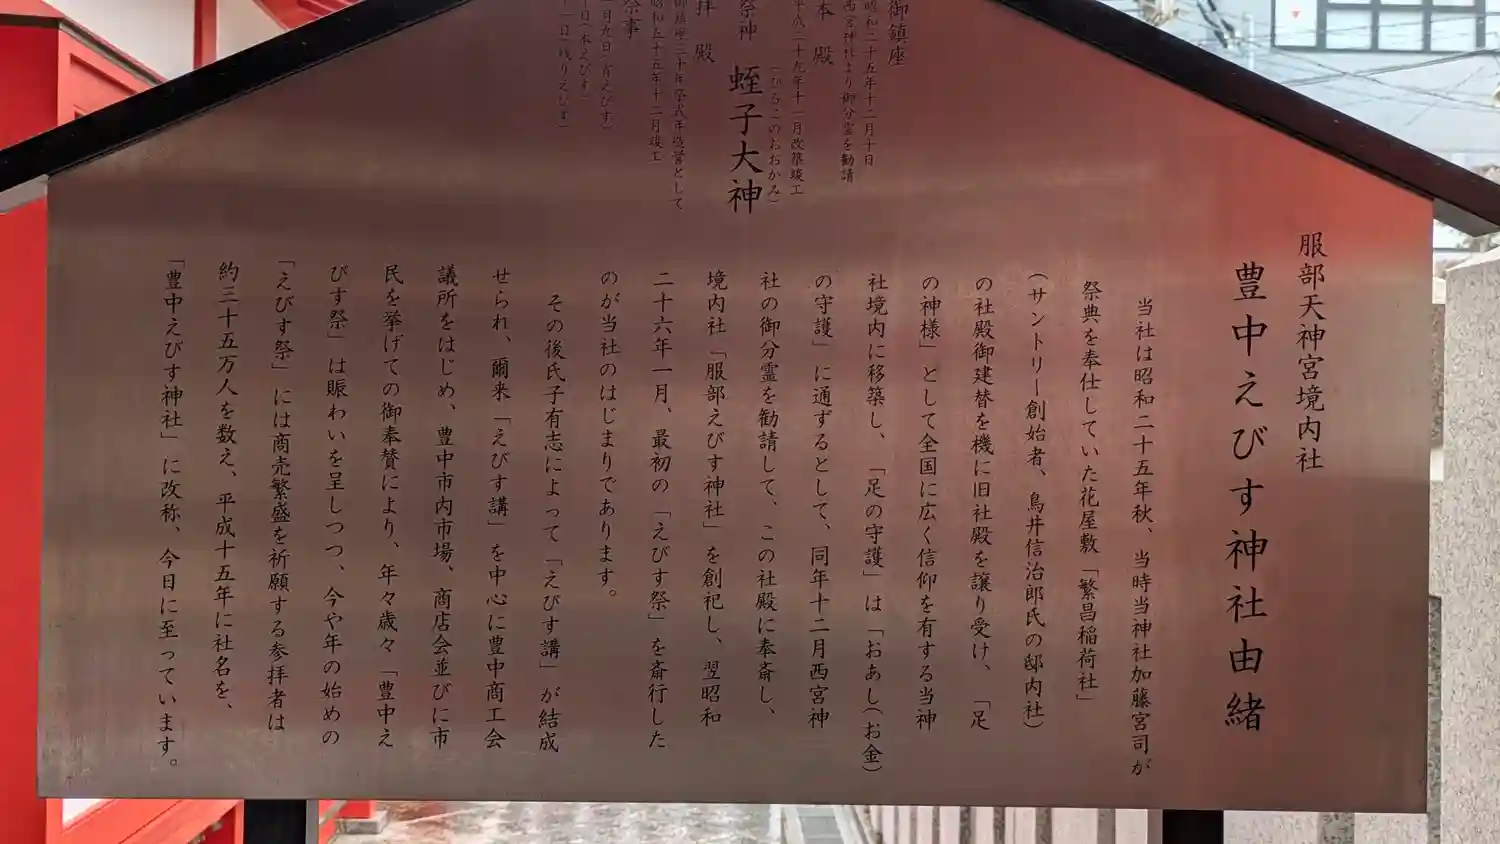 服部天神宮境内社
豊中えびす神社由緒
当社は昭和二十五年秋、当時当神社加藤宮司が
祭典を奉仕していた花屋敷「繁昌稲荷社」
(サントリー創始者、鳥井信治郎氏の邸内社)
の社殿御建替を機に旧社殿を譲り受け、「足
の神様」として全国に広く信仰を有する当神
社境内に移築し、「足の守護」は「おあし(お金)
の守護」に通ずるとして、同年十二月西宮神
社の御分霊を勧請して、この社殿に奉斎し、
境内社「服部えびす神社」を創祀し、翌昭和
二十六年一月、最初の「えびす祭」を斎行した
のが当社のはじまりであります。
その後氏子有志によって「えびす講」が結成
せられ、爾来「えびす講」を中心に豊中商工会
議所をはじめ、豊中市内市場、商店会並びに市
民を挙げての御奉賛により、年々歳々「豊中え
びす祭」は賑わいを呈しつつ、今や年の始めの
「えびす祭」には商売繁盛を祈願する参拝者は
約三十五万人を数え、平成十五年に社名を、
「豊中えびす神社」に改称、今日に至っています。
御鎮座
昭和二十五年十二月十日
西宮神社より御分霊を勧請
本殿
平成二十九年十一月改築竣工
(ひるこのおおかみ)
祭神 蛭子大神
拝殿
御鎮座三十年祭式年造営として
昭和五十五年十二月竣工
祭事
一月九日(宵えびす)
十日(本えびす)
十一日(残りえびす)